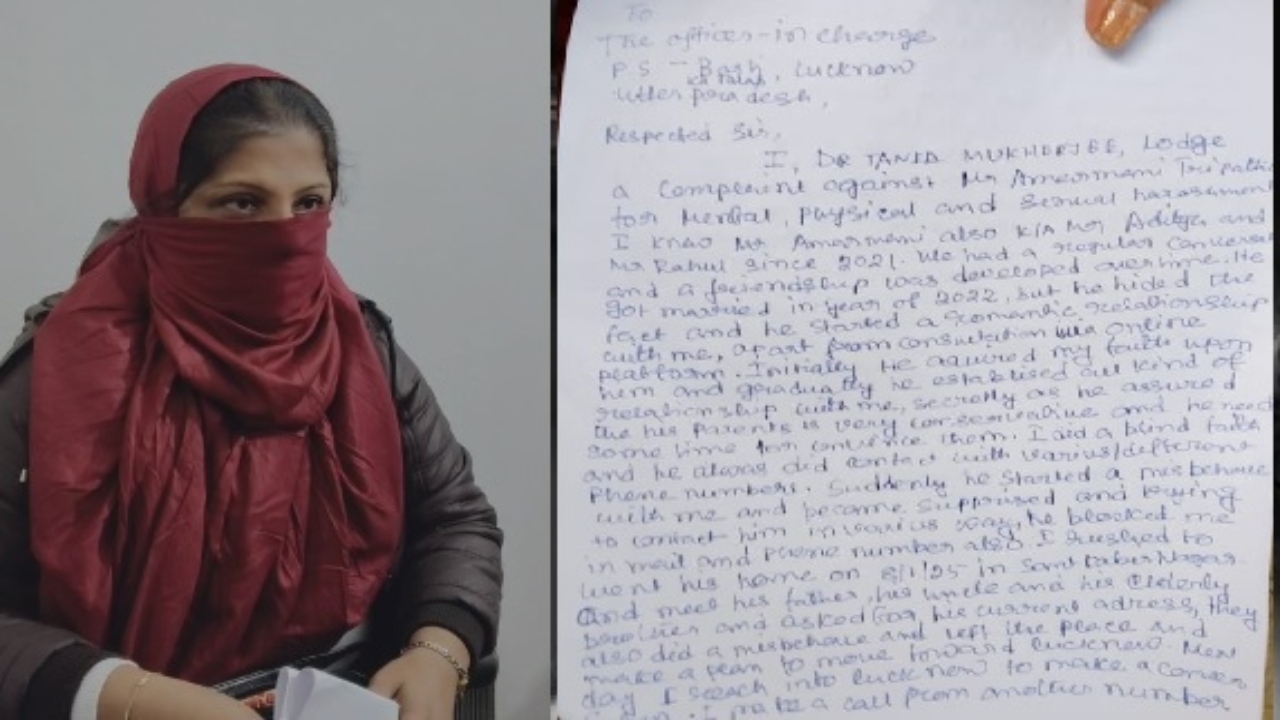 To
The officer-in charge
P.S - Bash, Lucknow
Utter pradesh,
Respected Sir,
I, DR TANIA MUKHERJEE, Lodge
a complaint against Mr Amarmani Tripathi
for Mental, Physical and Sexual harassment
I know Mr Amarmani also K/A Mr Aditya and
Mr Rahul since 2021. We had a regular conversa
and a friendship was developed overtime. He
got married in year of 2022, but he hided the
fact and he started a romantic relationship
with me, apart from consultation via online
platform. Initially he aquired my faith upon
him and gradually he establised all kind of
relationship with me, secretly as he assured
me his parents is very conservative and he need
some time for convence them. I did a blind faith
and he always did contact with varius/different
Phone numbers. Suddenly he started a misbehave
with me and became supprised and trying
to contact him in varius way, he blocked me
in mail and phone number also. I rushed to
went his home on 8/1/25 in Sant Kabir Nagar
and meet his father, his uncle and his Elderly
brother and asked for his current adress, they
also did a misbehave and left the place and
make a plan to move toward lucknow. Next
day I reach into lucknow to make a conver
I make a call from another number